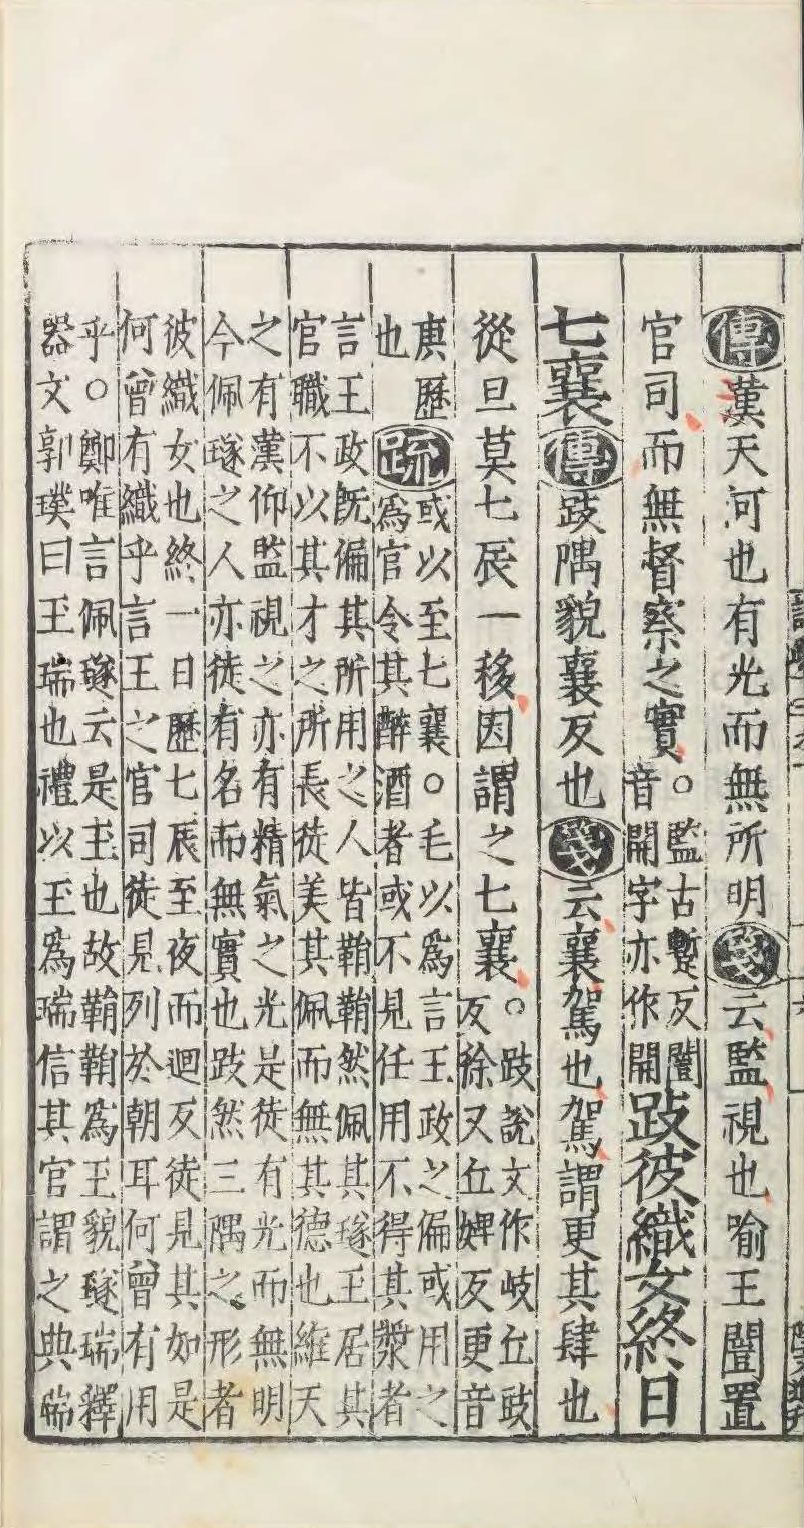 傳漢天河也有光而無所明箋云監視也喻王闓置
官司而無督察之實○監古蹔反闓
音開字亦作開
跂彼織女終日
七襄傳跂隅貌襄反也箋云襄駕也駕謂更其肆也
從旦莫七辰一移因謂之七襄○跂說文作歧丘豉
反徐又丘婢反更音
庚歷
也
疏或以至七襄○毛以爲言王政之偏或用之
爲官令其醉酒者或不見任用不得其漿者
言王政旣偏其所用之人皆鞙鞙然佩其璲王居其
官職不以其才之所長徒美其佩而無其德也維天
之有漢仰監視之亦有精氣之光是徒有光而無明
今佩璲之人亦徒有名而無實也跂然三隅之形者
彼織女也終一日歷七辰至夜而迴反徒見其如是
何曾有織乎言王之官司徒見列於朝耳何曾有用
乎○鄭唯言佩璲云是玉也故鞙鞙爲玉貌璲瑞釋
器文郭璞曰玉瑞也禮以玉爲瑞信其官謂之典瑞